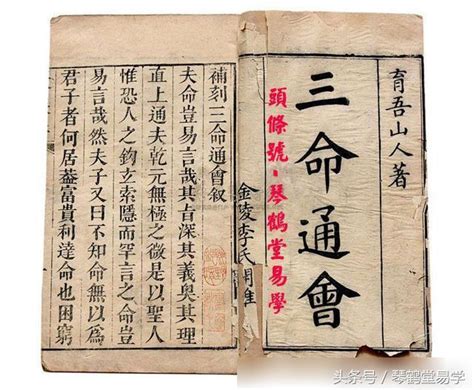 育吾山人著
三命通會
頭條號·琴鶴堂易學
金陵李氏
補刻三命通會叙
夫命豈易言哉其旨深其義奥其理
直上通夫乾元無極之微是以聖人
惟恐人之鉤玄索隱而罕言之命豈
易言哉然夫子又曰不知命無以爲
君子者何居葢富貴利達命也困窮
头条号／琴鹤堂易学